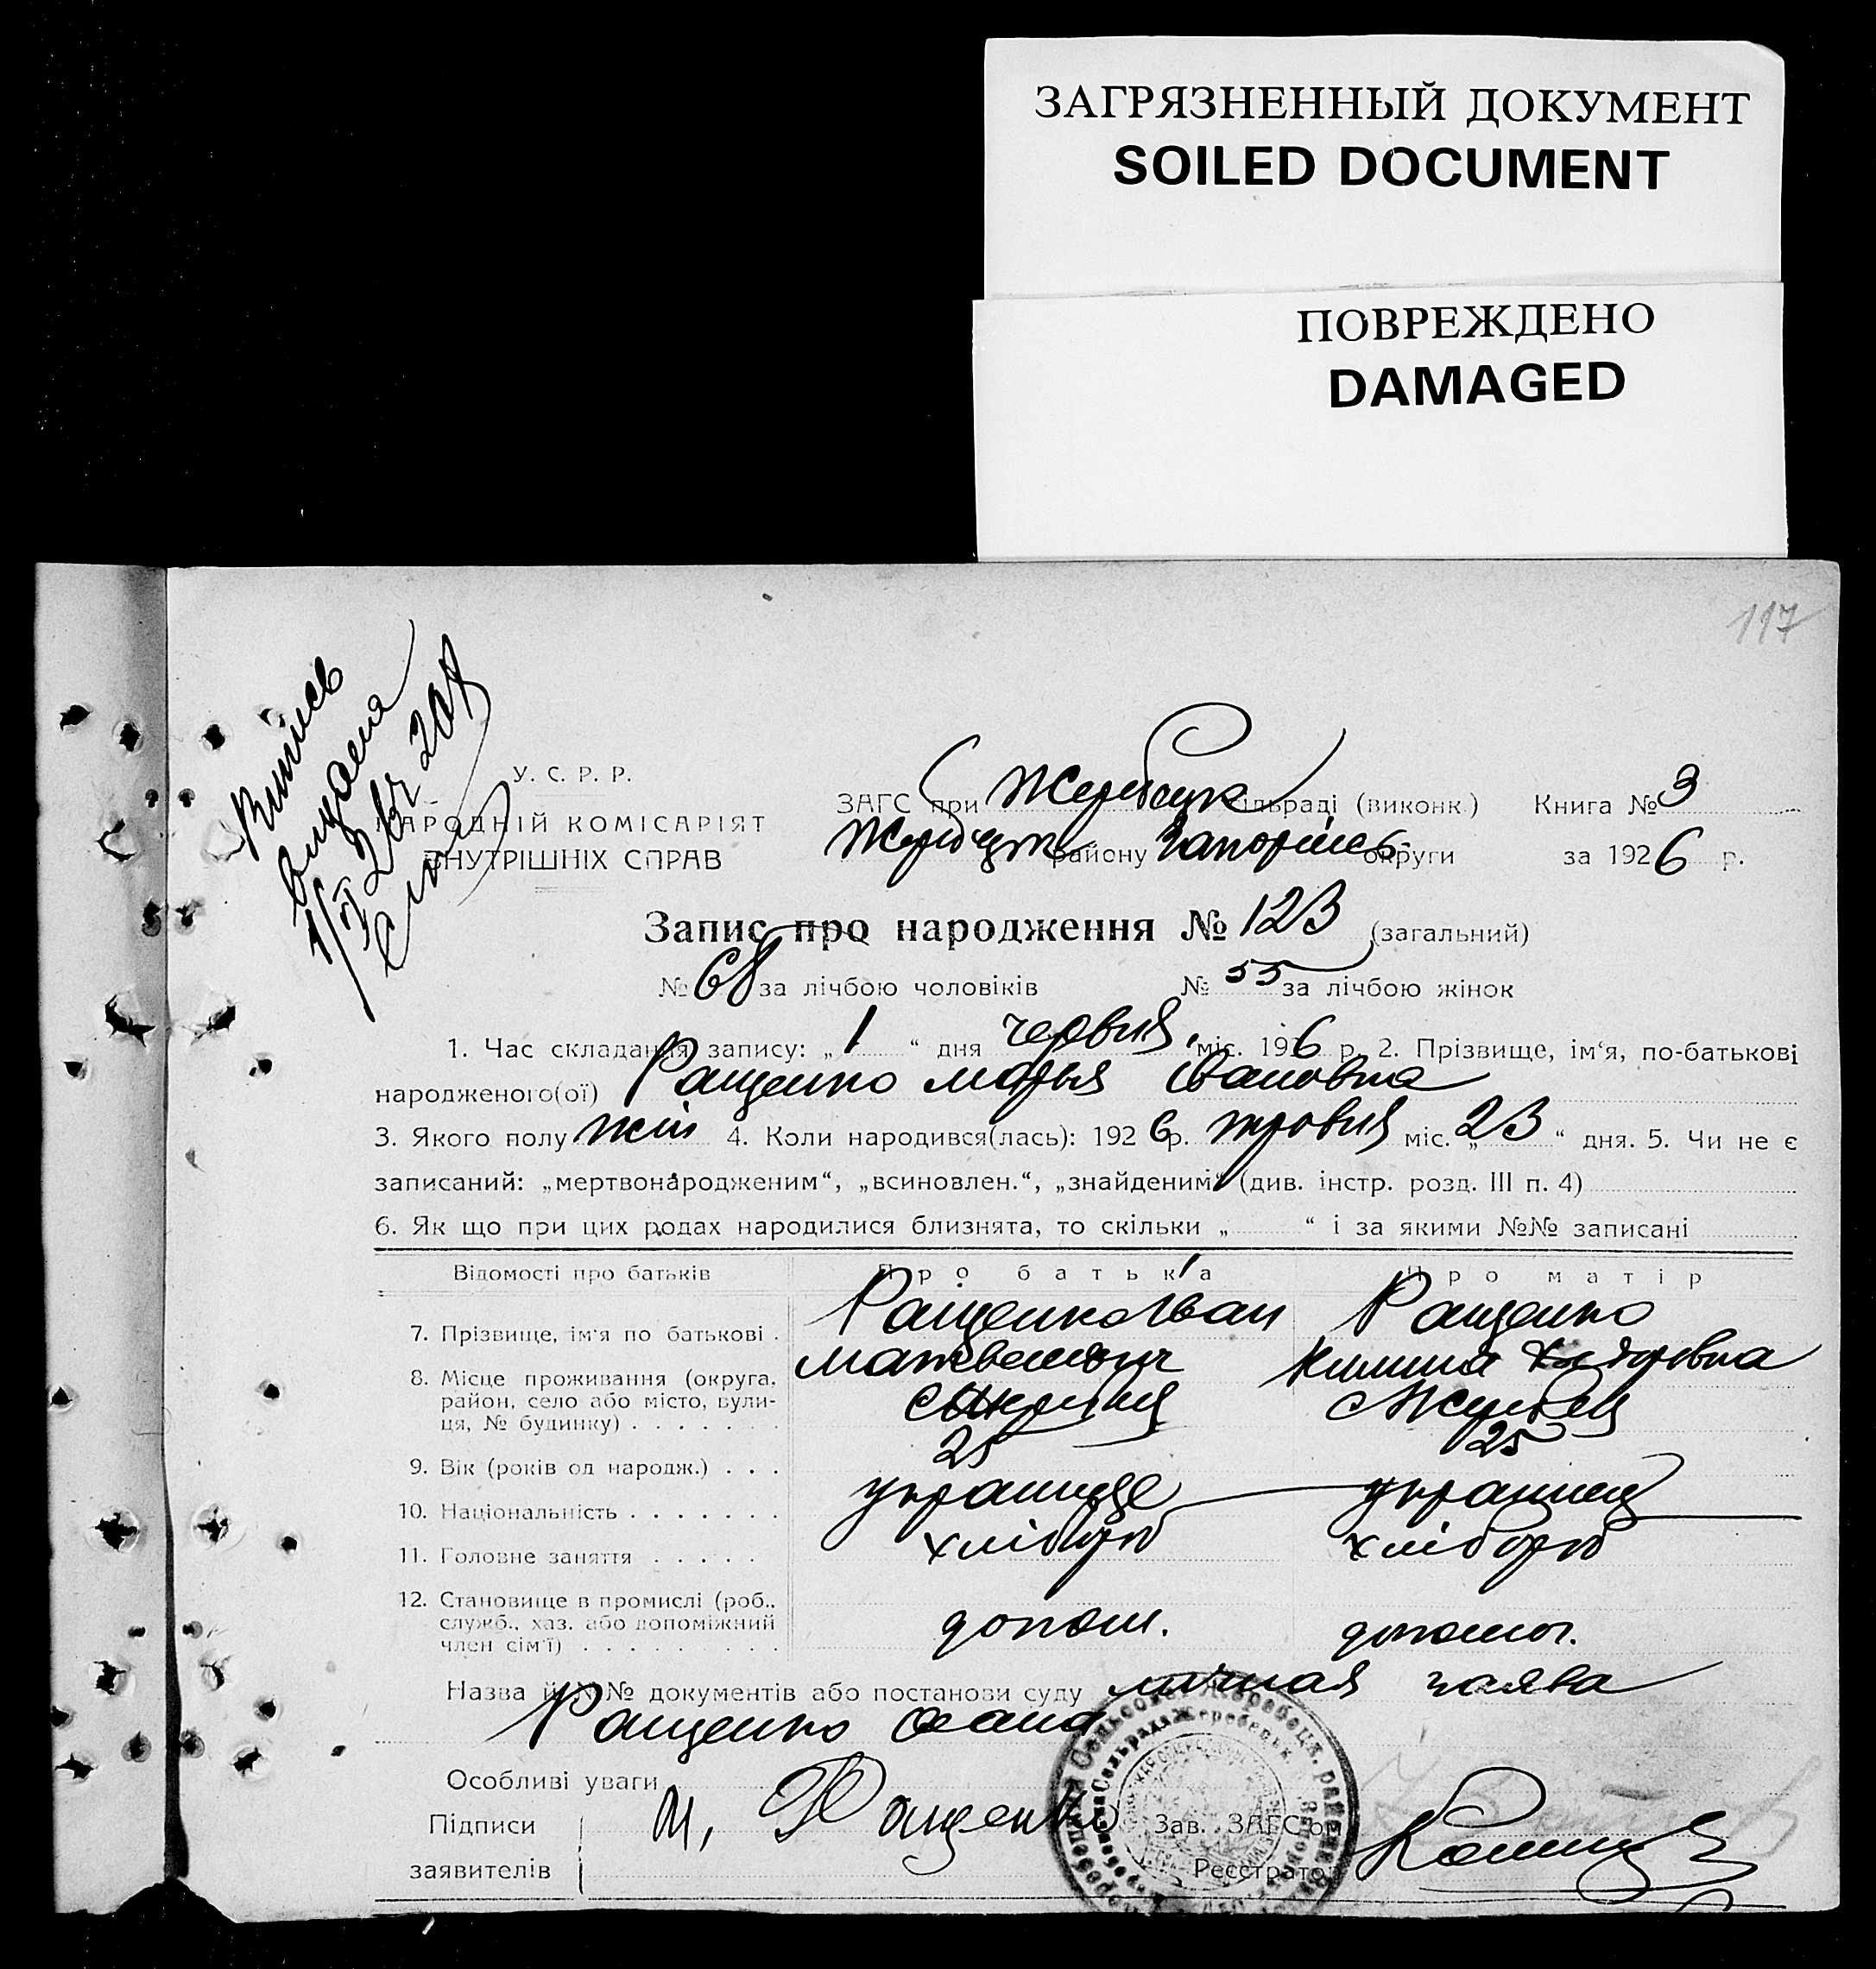 ЗАГРЯЗНЕННЫЙ ДОКУМЕНТ
SOILED DOCUMENT
ПОВРЕЖДЕНО
DAMAGED
117
Випись
видана
У. С. Р. Р.
НАРОДНІЙ КОМІСАРІЯТ
ВНУТРІШНІХ СПРАВ
ЗАГС при Жеребецк сільраді (виконк.) Книга № 3
Жеребецьк району Запоріжс. округи за 1926 р.
Запис про народження № 123 (загальний)
№ 68 за лічбою чоловіків № 55 за лічбою жінок
1. Час складання запису: „1“ дня червня міс. 1926 р. 2. Прізвище, ім‘я, по-батькові
народженого(ої) Ращенко Марья Івановна
3. Якого полу жін 4. Коли народився(лась): 1926 р. травня міс. „23“ дня. 5. Чи не є
записаний: „мертвонародженим“, „всиновлен.“, „знайденим“ (див. інстр. розд. III п. 4)
6. Як що при цих родах народилися близнята, то скільки „ “ і за якими №№ записані
Відомості про батьків Про батька Про матір
7. Прізвище, ім‘я по батькові . Ращенко Іван Ращенко
Матвеевич Килина Хведоровна
8. Місце проживання (округа,
район, село або місто, вули-
ця, № будинку) . . . . . . . с Жеребец
9. Вік (років од народж.) . . . 25 25
10. Національність . . . . . . . українце українец
11. Головне заняття . . . . . хлібороб хлібороб
12. Становище в промислі (роб.,
служб., хаз. або допоміжний
член сім‘ї) . . . . . . . . . допом. допомог.
Назва й №№ документів або постанови суду личная заява
Ращенко Ивана
Особливі уваги
Підписи
заявителів
И. Ращенко
Зав. ЗАГС‘ом
Реєстратор